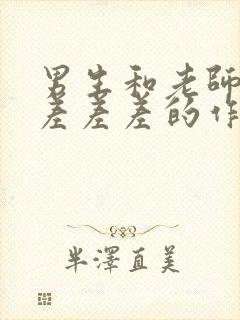 男生和老師
差差差的作
半澤直美